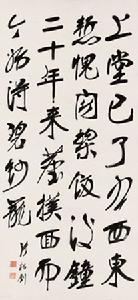 上堂已了各西東
慙愧闍黎飯後鐘
二十年來塵撲面如
今始得碧紗籠